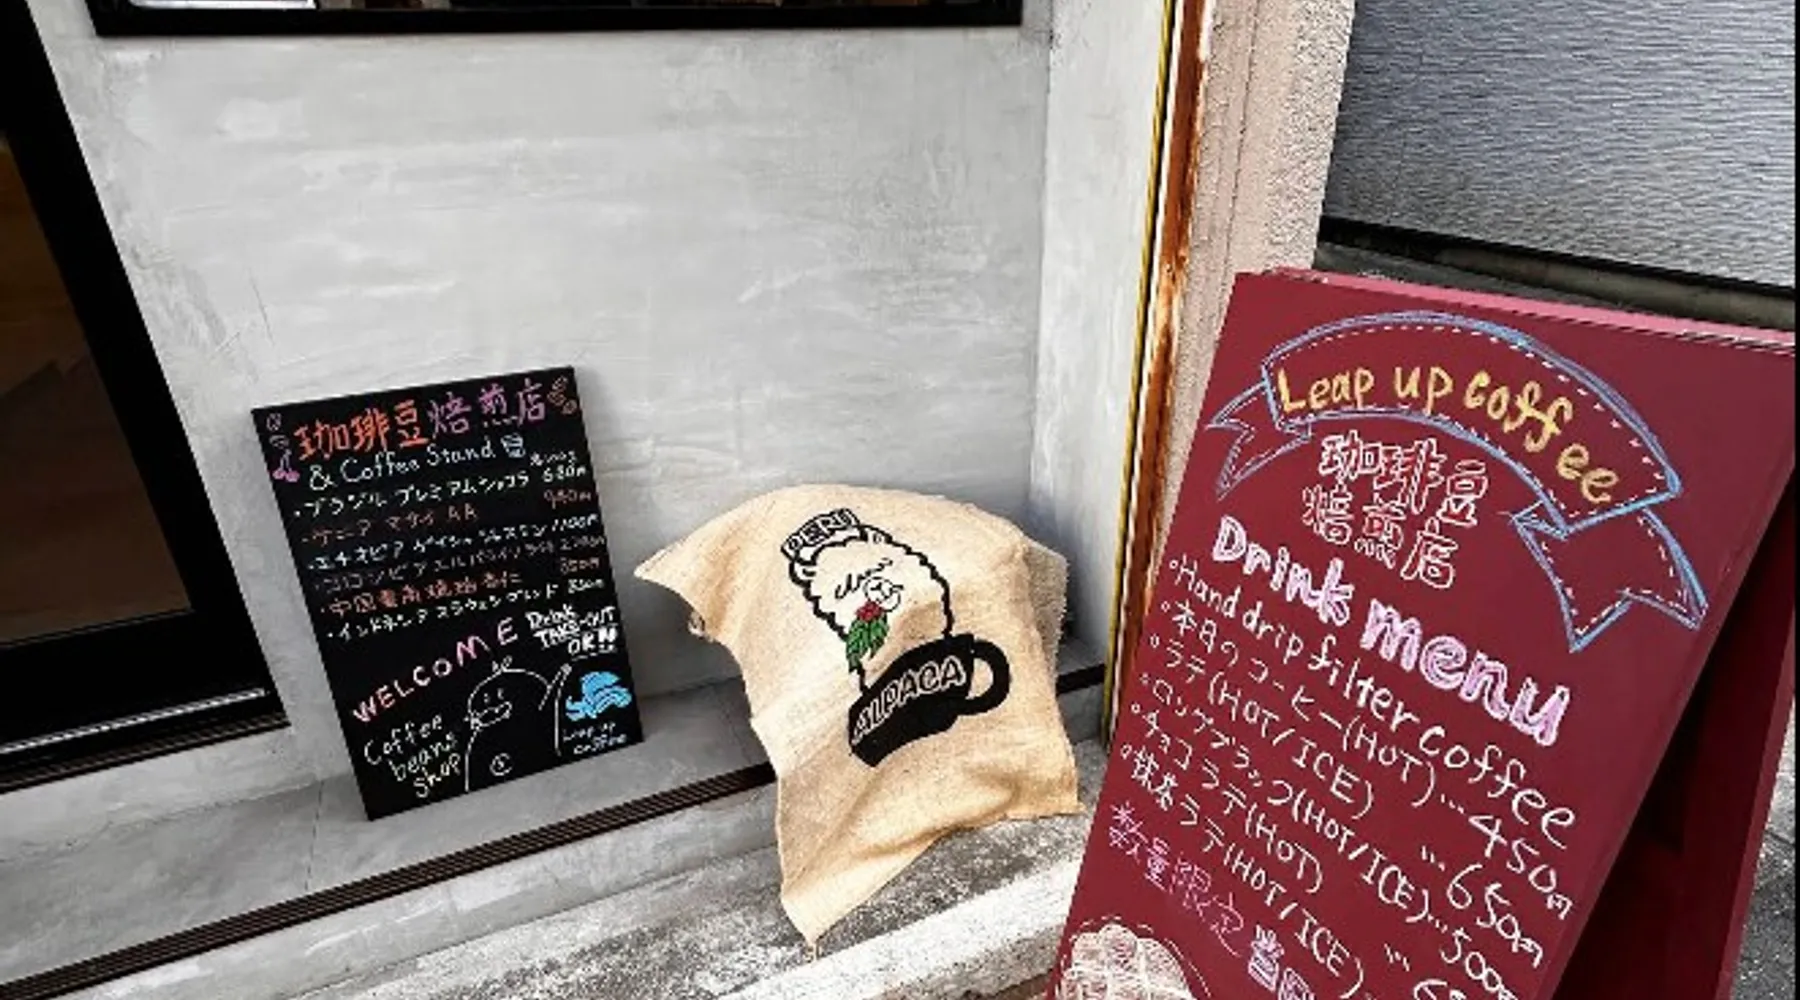 珈琲豆焙煎店
& Coffee Stand
・ブラジル プレミアムショコラ
・ケニア マサイ AA
・エチオピア ゲイシャ
・コロンビア エルパライソ
・中国雲南
・インドネシア スラウェシ ブレンド
WELCOME
Drink
TAKE-OUT
OK!!
Coffee
beans
shop
Leap up
coffee
PERU
ALPACA
Leap up coffee
珈琲豆
焙煎店
Drink menu
・Hand drip filter coffee
・本日のコーヒー(HOT)…450円
・ラテ(HOT/ICE) … 650円
・ロングブラック(HOT/ICE)…500円
・チョコラテ(HOT) …
・抹茶ラテ(HOT/ICE)
数量限定